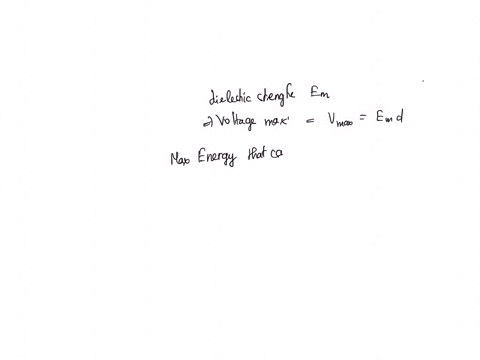 dielectric strenght Em
⇒ Voltage max = Vmax = Em d
Max Energy that ca